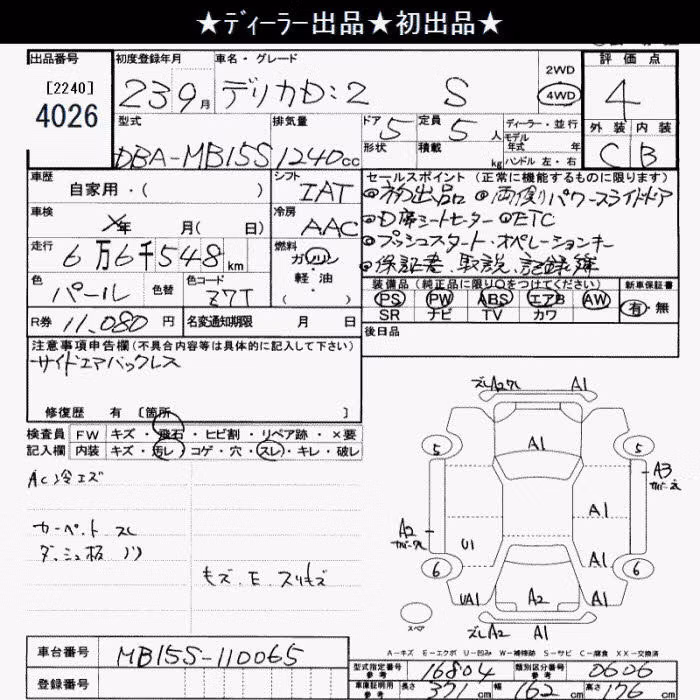 ★ディーラー出品★初出品★
出品番号 初度登録年月 車名・グレード 2WD 評価点
[2240] 4026 23 9月 デリカD:2 S 4WD 4
型式 排気量 ドア 5 定員 5人 ディーラー・並行 外装 内装
DBA-MB15S 1240cc 形状 積載 kg モデル年式 年 ハンドル 左・右 C B
車歴 自家用・( ) シフト IAT セールスポイント(正常に機能するものに限ります)
車検 年 月( 日) 冷房 AAC ◎初出品 ◎両側パワースライドドア
◎D席シートヒーター ◎ETC
走行 6万6千548km 燃料 ガソリン 軽・油 ・( ) ◎プッシュスタート・オペレーションキー
◎保証書、取説、記録簿
色 パール 色替 色コード Z7T 装備品(純正品に限り○をつけてください) 新車保証書
PS PW ABS エアB AW 有・無
R券 11,080円 名変通知期限 月 日 SR ナビ TV カワ
注意事項申告欄(不具合内容等は具体的に記入して下さい) 後日品
サイドエアバックレス
修復歴 有 [箇所 ]
検査員 FW キズ・飛石・ヒビ割・リペア跡・×要
記入欄 内装 キズ・汚レ・コゲ・穴・スレ・キレ・破レ
AC冷エズ
カーペット スレ
ダッシュ板
キズ.E.スリキズ
ズレA2 A1
5 A1 5
A3
A2 A1
U1 A1
6 6
UA1 A2 A1
スペア ズレA2 A1
A-キズ E-エクボ U-凹み W-補修跡 S-サビ C-腐食 XX-交換済
車台番号 MB15S-110065 型式指定番号 参考 16804 類別区分番号 参考 0606
登録番号 車庫証明用 参考 長さ 371cm 幅 162cm 高さ 176cm